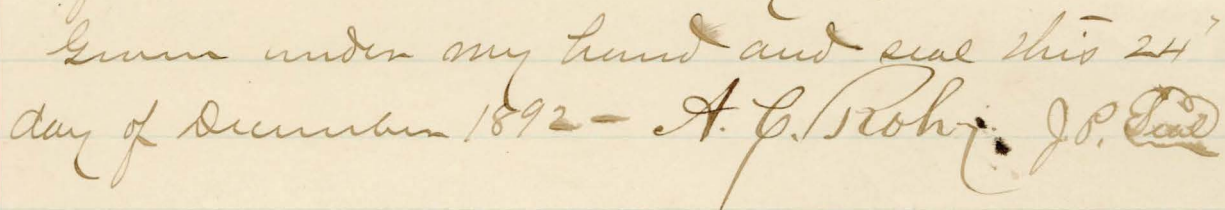 Given under my hand and seal this 24"
day of December 1892 - A. C. Rohr J.P. Seal